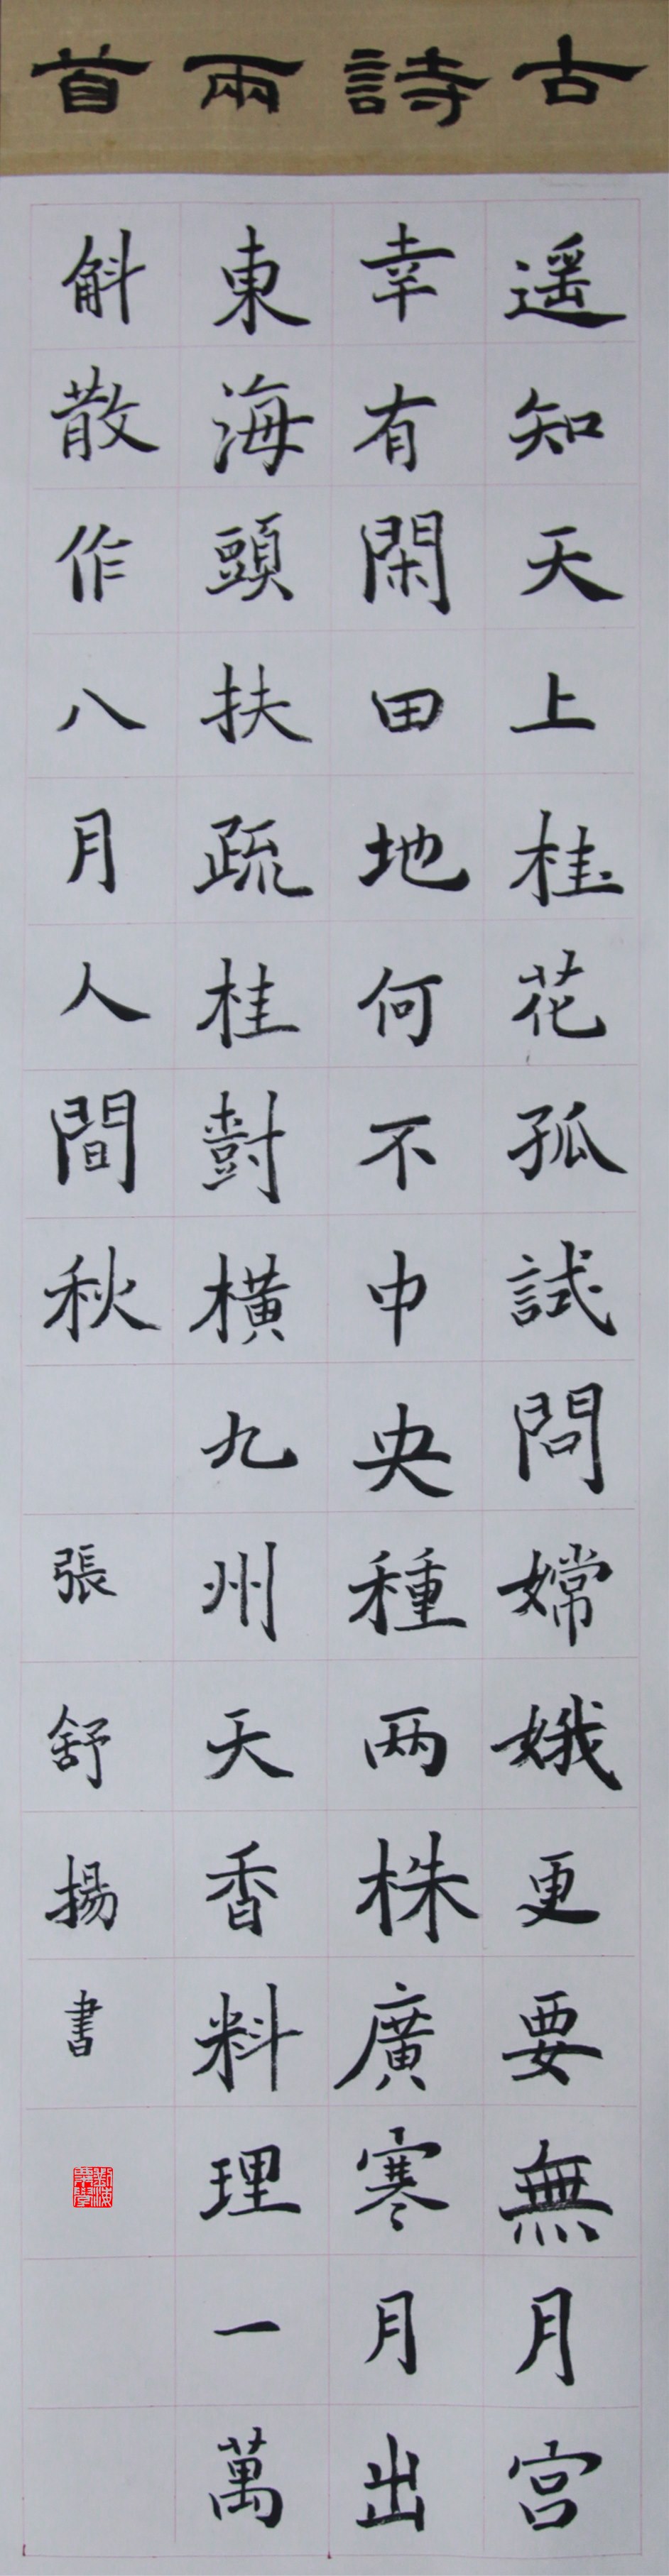 古詩兩首
遥知天上桂花孤試問嫦娥更要無月宫
幸有閑田地何不中央種两株廣寒月出
東海頭扶疏桂對横九州天香料理一萬
斛散作八月人間秋
張舒揚書